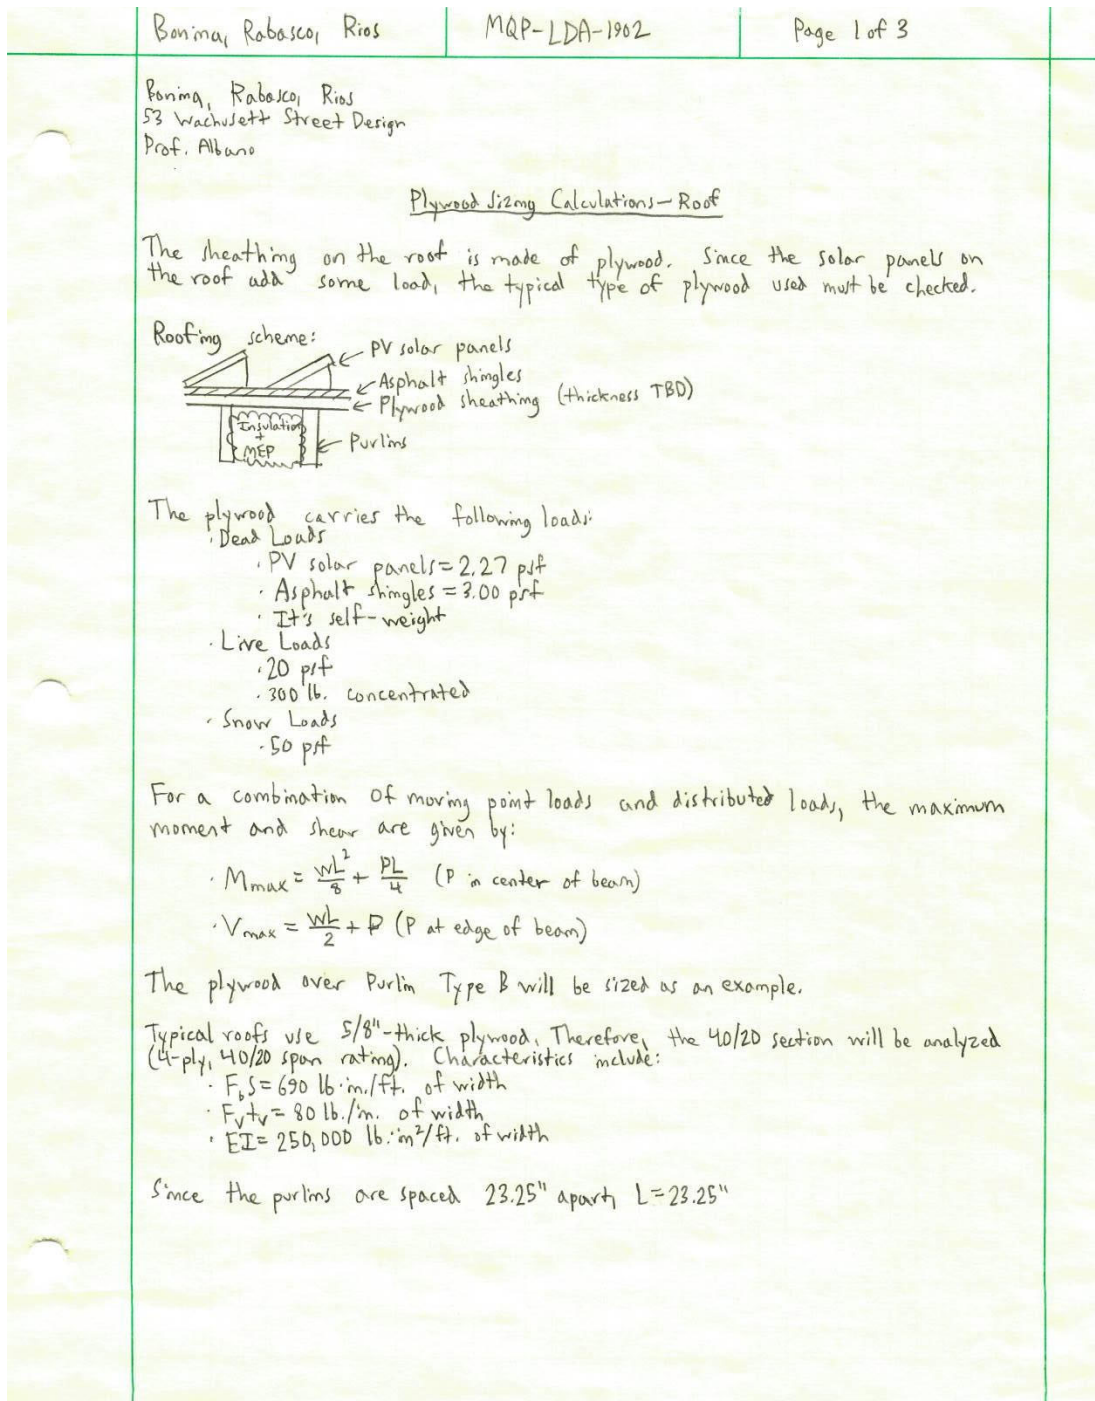 Bonina, Rabasco, Rios
MQP-LDA-1902
Page 1 of 3
Bonina, Rabasco, Rios
53 Wachusett Street Design
Prof. Albano
Plywood Sizing Calculations - Roof
The sheathing on the roof is made of plywood. Since the solar panels on
the roof add some load, the typical type of plywood used must be checked.
Roofing scheme:
PV solar panels
Asphalt shingles
Plywood sheathing (thickness TBD)
Insulation
+
MEP
Purlins
The plywood carries the following loads:
· Dead Loads
· PV solar panels = 2.27 psf
· Asphalt shingles = 3.00 psf
· It's self-weight
· Live Loads
· 20 psf
· 300 lb. concentrated
· Snow Loads
· 50 psf
For a combination of moving point loads and distributed loads, the maximum
moment and shear are given by:
· Mmax = wL²/8 + PL/4 (P in center of beam)
· Vmax = wL/2 + P (P at edge of beam)
The plywood over Purlin Type B will be sized as an example.
Typical roofs use 5/8"-thick plywood. Therefore, the 40/20 section will be analyzed
(4-ply, 40/20 span rating). Characteristics include:
· FbS = 690 lb·in./ft. of width
· Fvtv = 80 lb./in. of width
· EI = 250,000 lb.·in²/ft. of width
Since the purlins are spaced 23.25" apart, L = 23.25"